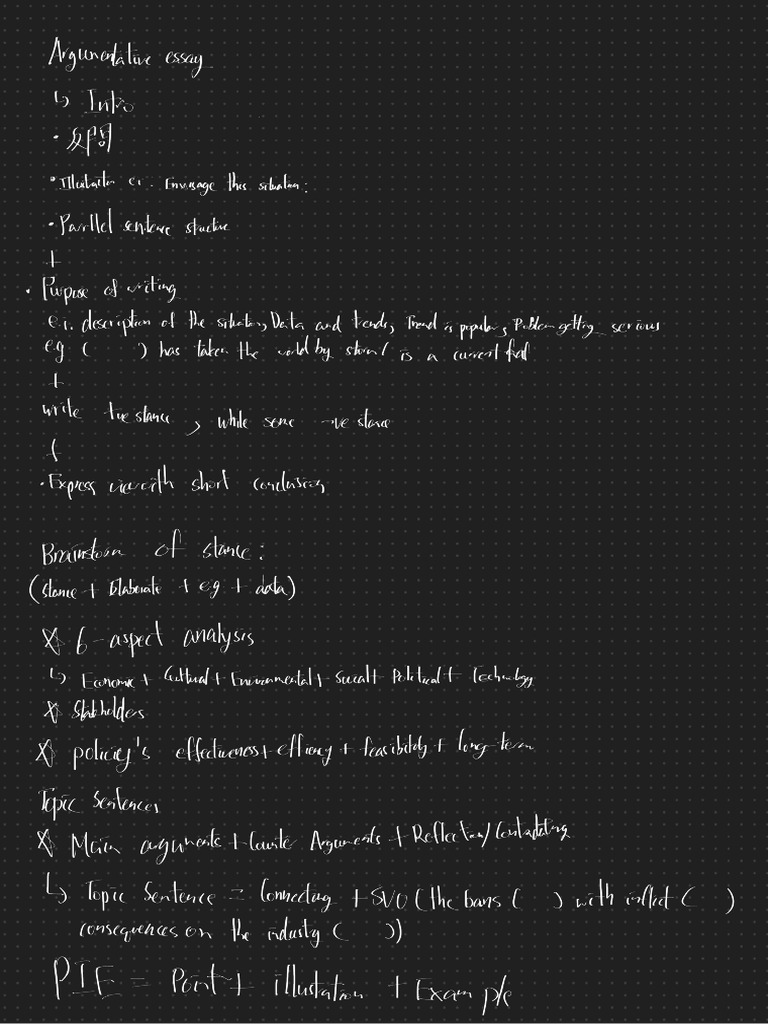 Argumentative essay
↳ Intro
• 反問
• Illustration e.i. Envisage this situation:
• Parallel sentence structure
+
• Purpose of writing
e.i. description of the situation, Data and trends, Trend is popular, Problem getting serious
e.g ( ) has taken the world by storm / is a current fad
+
write +ve stance, while some -ve stance
+
• Express view with short conclusion
Brainstorm of stance:
(Stance + Elaborate + e.g + data)
6-aspect analysis
↳ Economic + Cultural + Environmental + Social + Political + Technology
Stakholders
policy's effectiveness + efficacy + feasibility + long-term
Topic Sentences
Main arguments + Counter Arguments + Reflection/Contradicting
↳ Topic Sentence = Connecting + SVO (the bans ( ) with inflict ( )
consequences on the industry ( ))
PIE = Point + illustration + Example